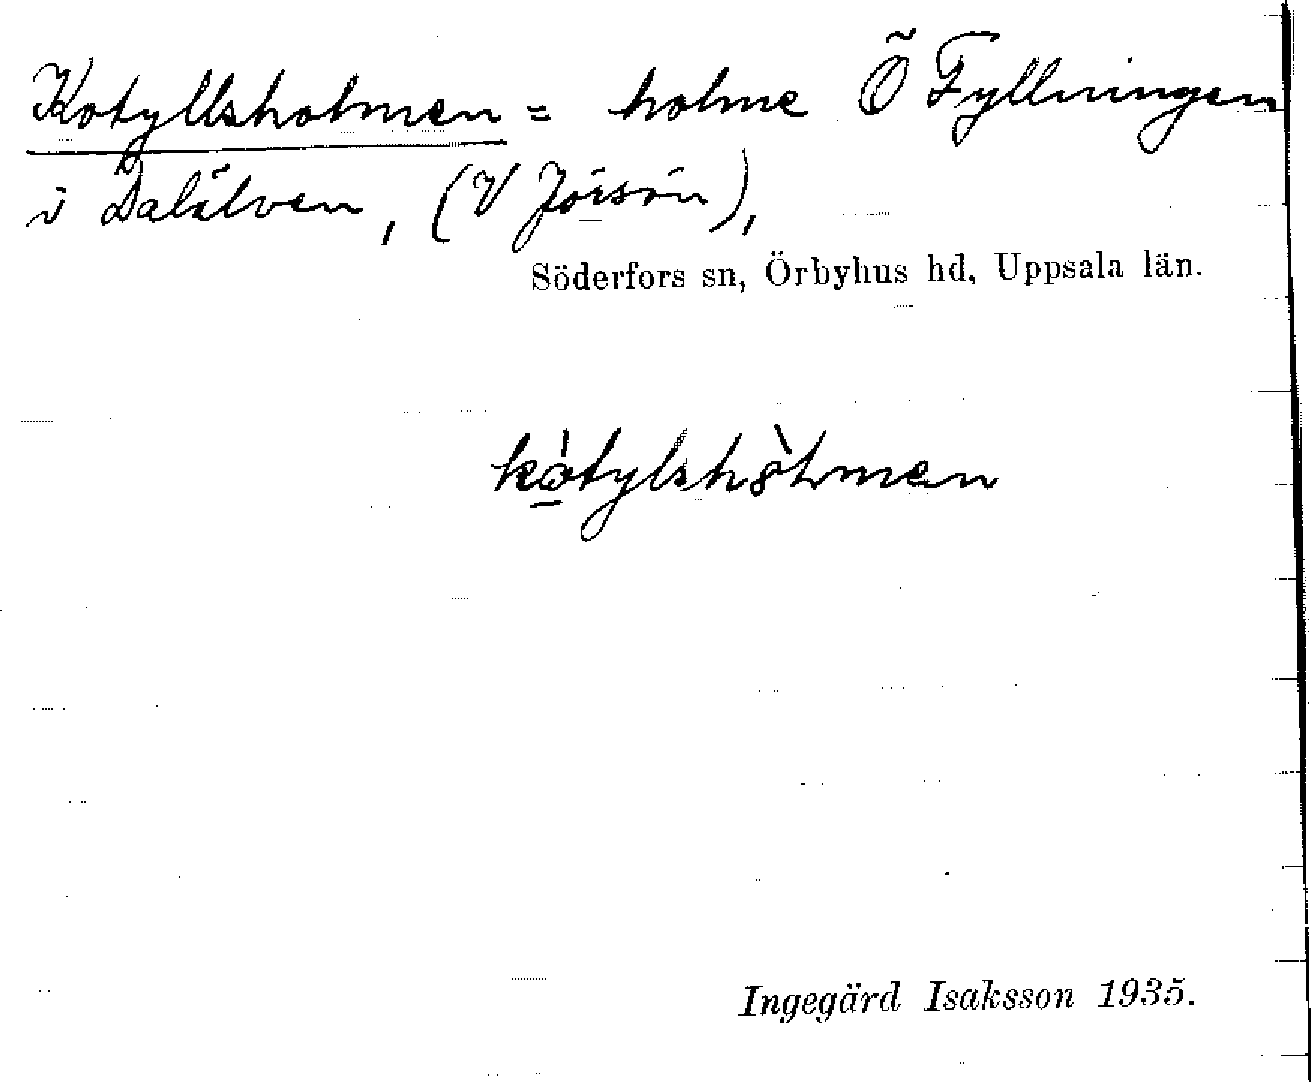 Kotyllsholmen = holme Ö Fyllningen
i Dalälven, (V Jörsön),
Söderfors sn, Örbyhus hd, Uppsala län.
kòtylshòlmen
Ingegärd Isaksson 1935.